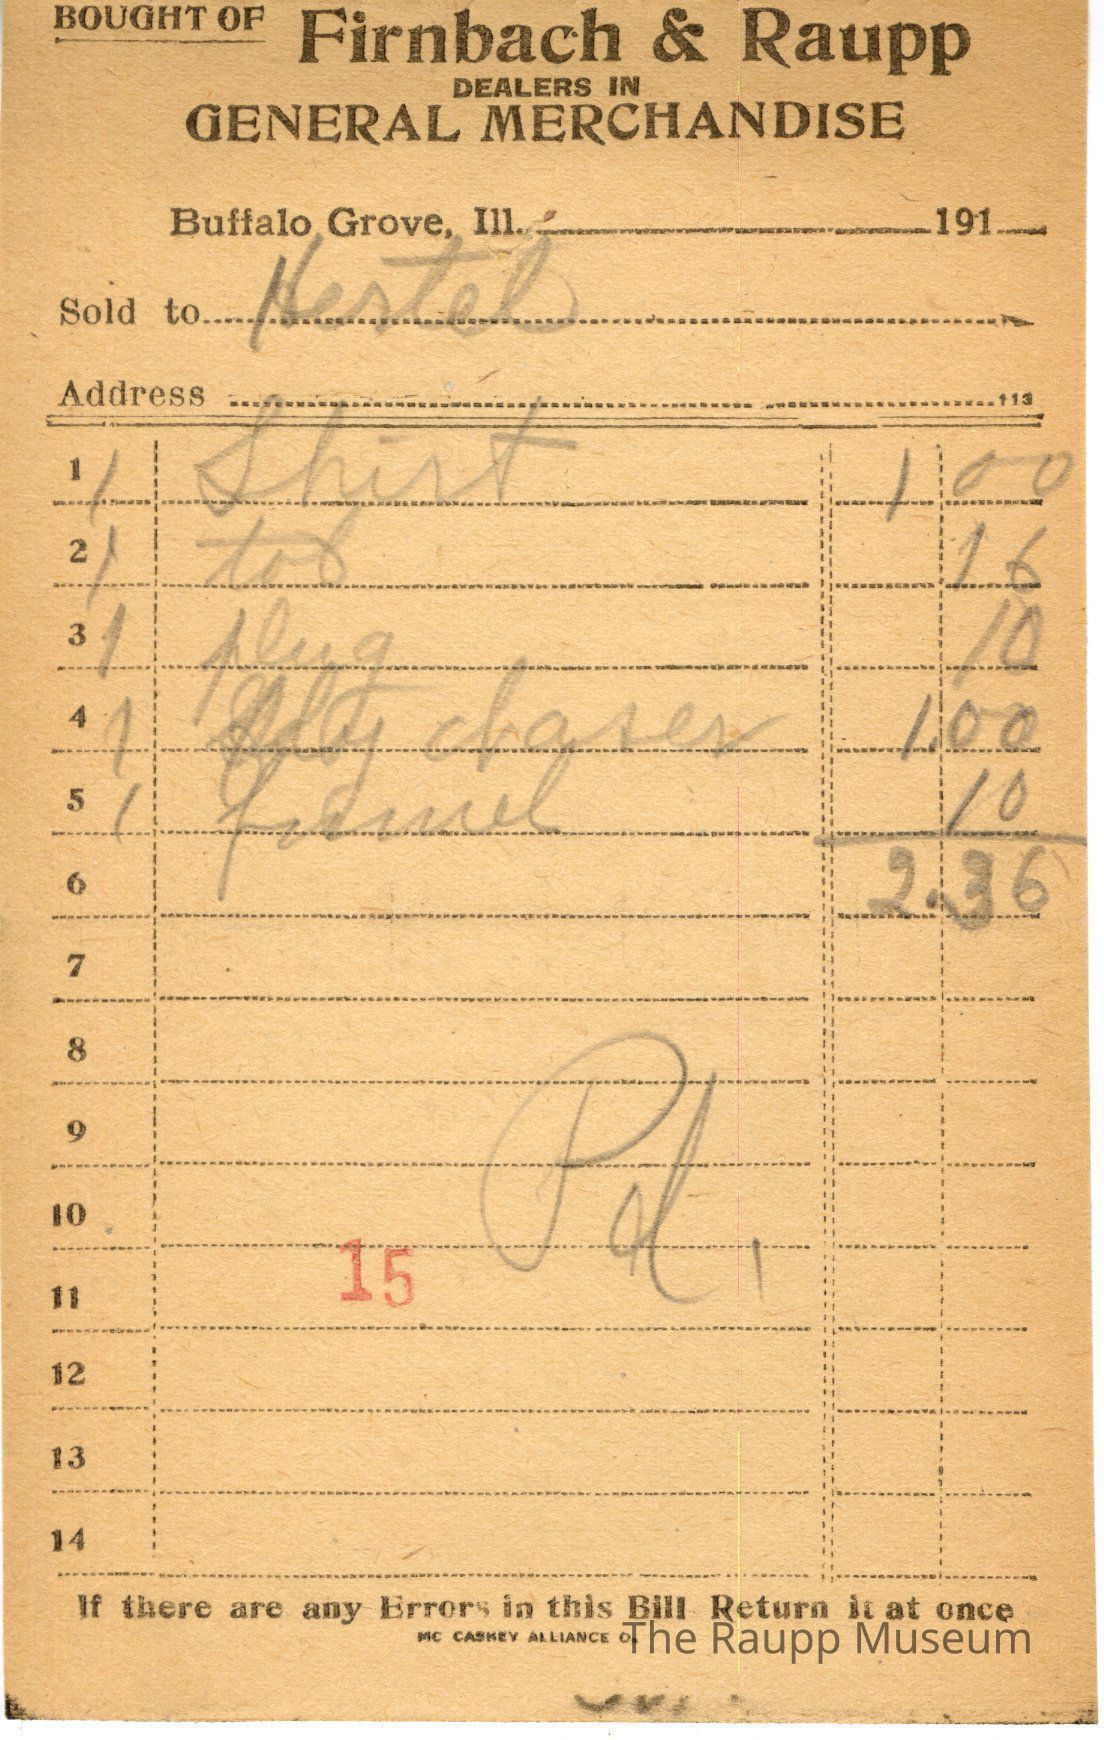 BOUGHT OF Firnbach & Raupp
DEALERS IN
GENERAL MERCHANDISE
Buffalo Grove, Ill. 191
Sold to Hertel
Address 113
1 1 Shirt 1 00
2 1 tob 16
3 1 plug 10
4 1 chaser 1.00
5 1 funnel 10
6 2.36
7
8
9
Pd.
10
15
11
12
13
14
If there are any Errors in this Bill Return it at once
MC CASKEY ALLIANCE O.
The Raupp Museum